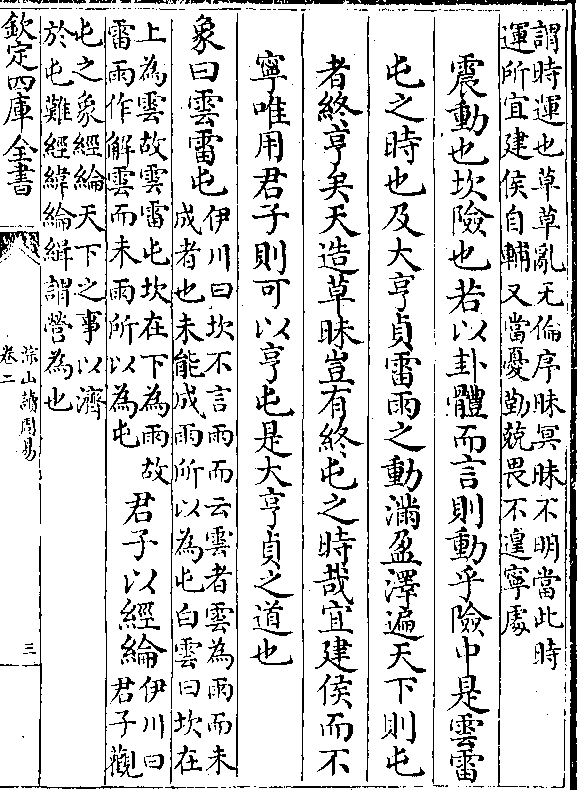 謂時運也草草亂无倫序昧冥昧不明當此時
運所宜建侯自輔又當憂勤兢畏不遑寧處
震動也坎險也若以卦體而言則動乎險中是雲雷
屯之時也及大亨貞雷雨之動滿盈澤遍天下則屯
者終亨矣天造草昧豈有終屯之時哉宜建侯而不
寧唯用君子則可以亨屯是大亨貞之道也
象曰雲雷屯
伊川曰坎不言雨而云雲者雲為雨而未
成者也未能成雨所以為屯白雲曰坎在
上為雲故雲雷屯坎在下為雨故
雷雨作解雲而未雨所以為屯
君子以經綸
伊川曰
君子觀
屯之象經綸天下之事以濟
於屯難經緯綸緝謂營為也
欽定四庫全書
卷二
涂山讀周易
三